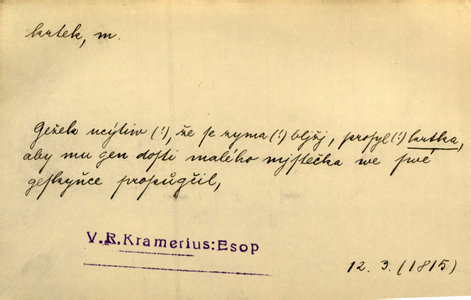 krtek, m.
Gežek ucýtiw (!), že se zyma (!) bljžj, prosyl (!) krtka,
aby mu gen dosti malého mjstečka we swé
geskyňce propůgčil,
V. R. Kramerius: Esop
12. 3. (1815)